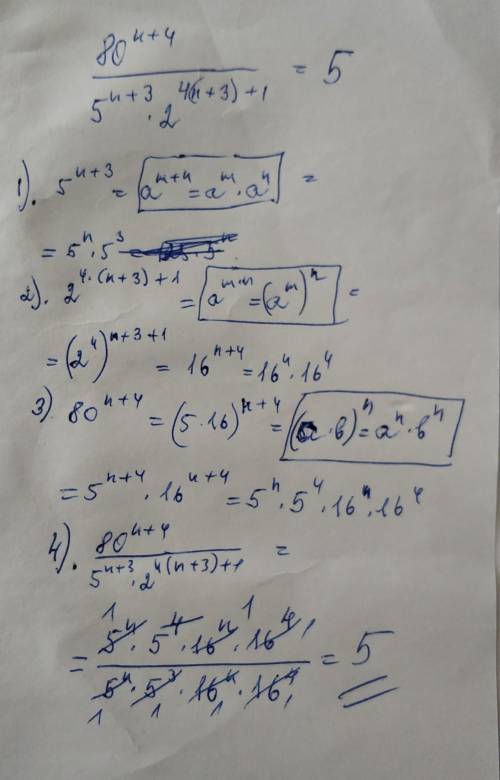 80^(n+4) / (5^(n+3) · 2^(4(n+3)+1)) = 5
1). 5^(n+3) = [a^(m+n) = a^m · a^n] =
= 5^n · 5^3
2). 2^(4·(n+3)+1) = [a^(m·n) = (a^m)^n] =
= (2^4)^(n+3+1) = 16^(n+4) = 16^n · 16^4
3) 80^(n+4) = (5·16)^(n+4) = [(a·b)^n = a^n · b^n]
= 5^(n+4) · 16^(n+4) = 5^n · 5^4 · 16^n · 16^4
4). 80^(n+4) / (5^(n+3) · 2^(4(n+3)+1)) =
= (5^n · 5^4 · 16^n · 16^4) / (5^n · 5^3 · 16^n · 16^4) = 5